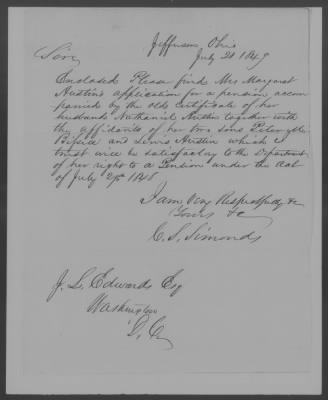 Jefferson, Ohio
July 21 1849
Sir,
Enclosed Please find Mrs Margaret
Austin's application for a pension, accom
panied by the old certificate of her
husband Nathaniel Austin together with
the affidavits of her two sons
and Lewis Austin which I
trust will be satisfactory to the Department
of her right to a Pension under the act
of July 29th 1848
I am Very Respectfully &c
Yours &c
C. S. Simonds
J. L. Edwards Esq
Washington
D. C.